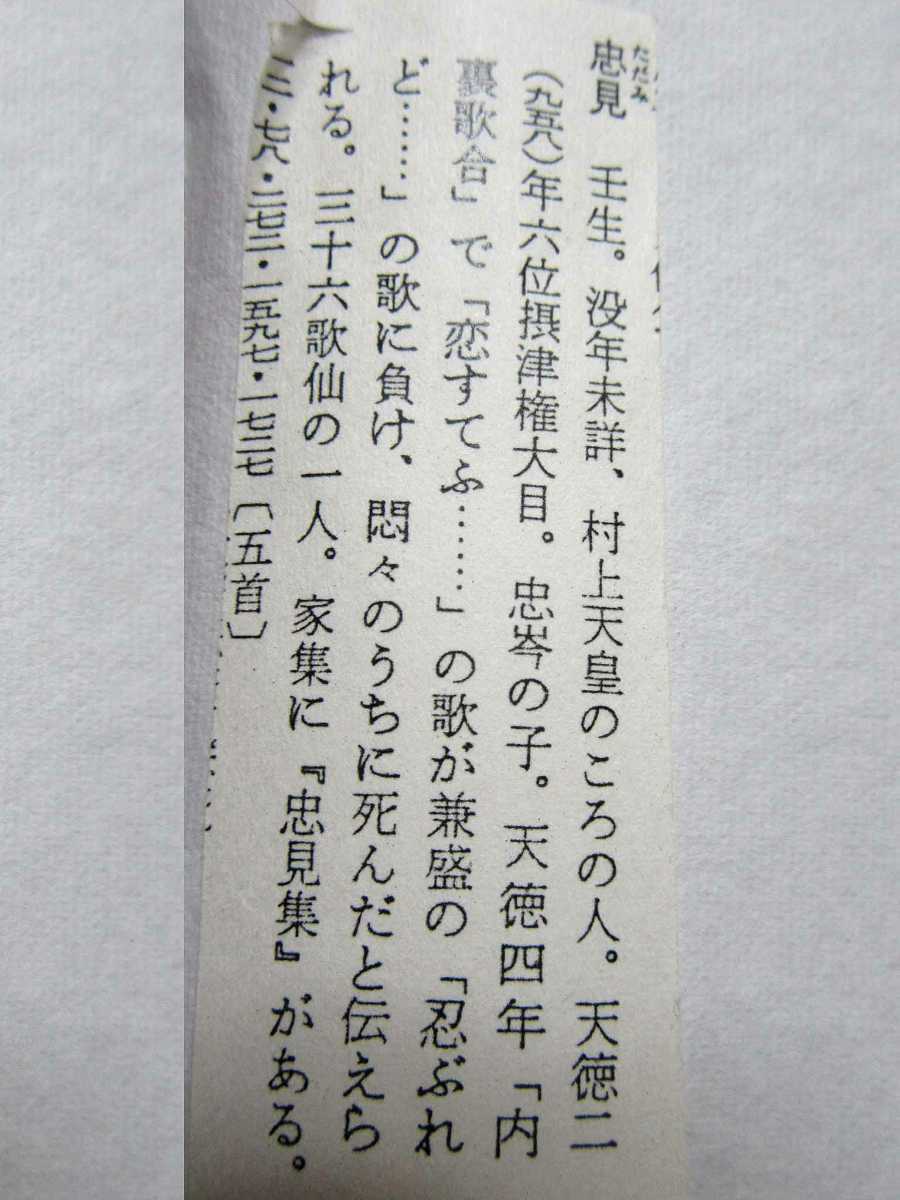 忠見　壬生。没年未詳、村上天皇のころの人。天徳二
ただみ
（九五八）年六位摂津権大目。忠岑の子。天徳四年「内
裏歌合」で「恋すてふ……」の歌が兼盛の「忍ぶれ
ど……」の歌に負け、悶々のうちに死んだと伝えら
れる。三十六歌仙の一人。家集に『忠見集』がある。
七八・二七二・一五九七・一七二七〔五首〕